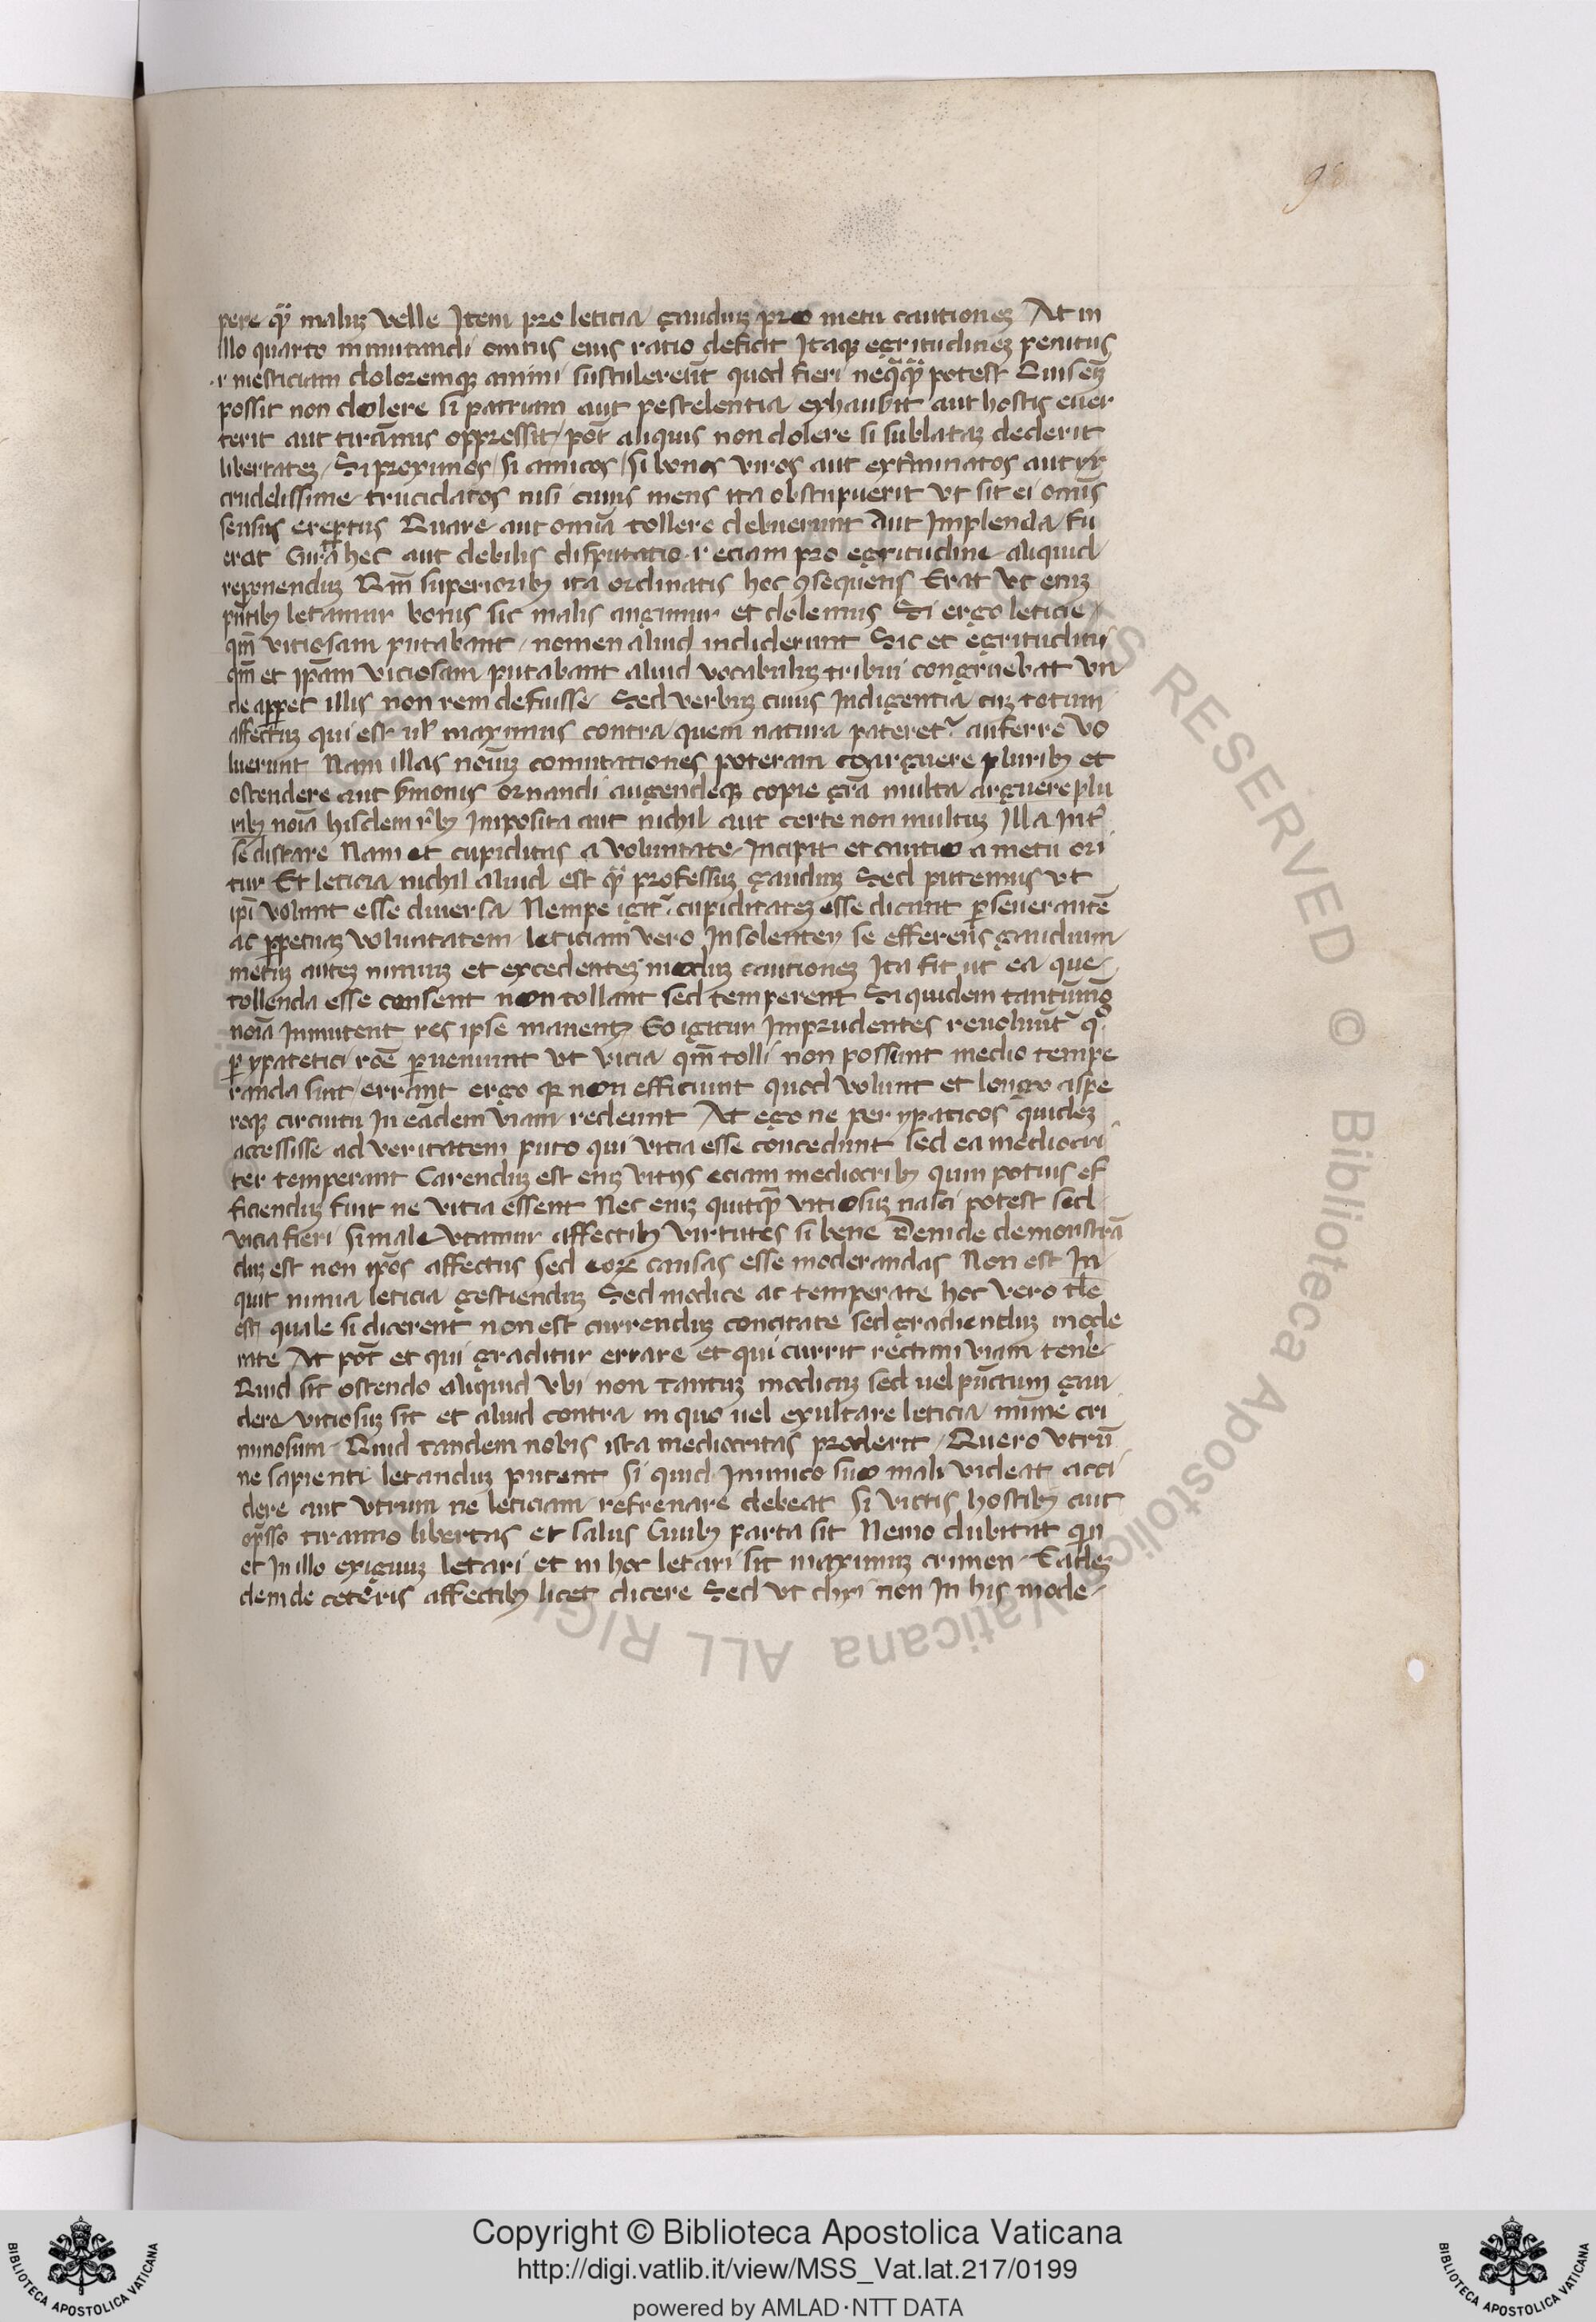 98
pere qͣ maluꝫ velle Item pro leticia gaudiuꝫ pro metu cautioneꝫ At in
illo quarto inmutandi omīus eius ratio deficit Itaqꝫ egritudineꝫ penitus
⁊ mesticiam doloremqꝫ animi sustulerūt quod fieri neq̄qͣ potest Quis enīꝫ
possit non dolere si patriam aut pestelentia exhausit aut hostis euer
terit aut tirānus oppressit / pōt aliquis non dolere si sublataꝫ dederit
libertateꝫ / Si proximos / si amicos / si bonos viros aut exterminatos aut
crudelissime trucidatos nisi cuius mens ita obstupuerit vt sit ei om̄is
sensus ereptus Quare aut om̄ia tollere debuerunt Aut Implenda fu
erat Cura hec aut debilis disputatio ⁊ eciam pro egritudine aliquid
reponenduꝫ Qm̄ superioribꝫ ita ordinatis hoc ꝯsequētis Erat vt enīꝫ
pn̄tibꝫ letamur bonis sic malis angimur et dolemus Si ergo leticie
qm̄ vitiosam putabant / nomen aliud indiderunt Sic et egritudini
qm̄ et ip̄am viciosam putabant aliud vocabuluꝫ tribui congruebat vn
de apꝑet illis non rem defuisse Sed verbuꝫ cuius Indigentia euꝫ totum
affectuꝫ qui est ul̓ maximus contra quem natura pateret᷑ auferre vo
luerunt Nam illas noīuꝫ comutationes poteram coarguere pluribꝫ et
ostendere aut ẜmonis ornandi augendeqꝫ copie gr̄a multa arguere plu
ribꝫ noīa hisdem rēbꝫ Imposita aut nichil aut certe non multuꝫ Illa Int̓
se distare Nam et cupiditas a voluntate Incipit et cautio a metu ori
tur Et leticia nichil aliud est qͣ professuꝫ gaudiuꝫ Sed putemus vt
ip̄i volunt esse diuersa Nempe igit᷑ cupiditateꝫ esse dicunt ꝑseuerantē
ac ꝑpetuaꝫ voluntatem leticiam vero Insolenter se efferens gaudium
metuꝫ auteꝫ nimiuꝫ et excedenteꝫ moduꝫ cautioneꝫ Ita fit ut ea que
tollenda esse censent non tollant sed temperent Siquidem tantūmō
noīa Inmutent res ipse manentꝫ Eo igitur Imprudentes reuoluūt᷑ qͦ
ꝑypatetici rōe ꝑueniunt vt vicia qm̄ tolli non possunt medio tempe
randa sint / errant ergo qꝫ non efficiunt quod volunt et longo aspe
roqꝫ circuitu In eādem viam redeunt At ego ne per ypaticos quideꝫ
accessisse ad veritatem puto qui vitia esse concedunt sed ea mediocri
ter temperant Carenduꝫ est enīꝫ vitijs eciam mediocribꝫ quin potius ef
ficienduꝫ fuit ne vitia essent Nec enīꝫ quitqͣ vitiosuꝫ nasci potest sed
vicia fieri si male vtamur affectibꝫ virtutes si bene Deinde demonstrā
duꝫ est non ip̄os affectus sed eoꝝ causas esse moderandas Non est In
quit nimia leticia gestienduꝫ Sed modice ac temperate hoc vero tl̄e
est quale si dicerent non est currenduꝫ concitate sed gradienduꝫ mode
rate At pōt et qui graditur errare et qui currit rectam viam tenēre
Quid sit ostendo aliquid vbi non tantuꝫ modicuꝫ sed uel pūctum gau
dere vitiosuꝫ sit et aliud contra in quo uel exultare leticia mīime cri
minosum Quid tandem nobis ista mediocritas proderit / Quero vtrū
ne sapienti letanduꝫ putent si quid Inimico suo mali videat acci
dere aut vtrum ne leticiam refrenare debeat si victis hostibꝫ aut
opp̄sso tiranno libertas et salus Ciuibꝫ parta sit Nemo dubitat quin
et In illo exiguuꝫ letari et in hoc letari sit maximuꝫ crimen Eadeꝫ
dem de ceteris affectibꝫ licet dicere Sed vt dixi non In his mode
Copyright © Biblioteca Apostolica Vaticana
http://digi.vatlib.it/view/MSS_Vat.lat.217/0199
powered by AMLAD·NTT DATA
BIBLIOTECA APOSTOLICA VATICANA
BIBLIOTECA APOSTOLICA VATICANA
ALL RIGHTS RESERVED © Biblioteca Apostolica Vaticana